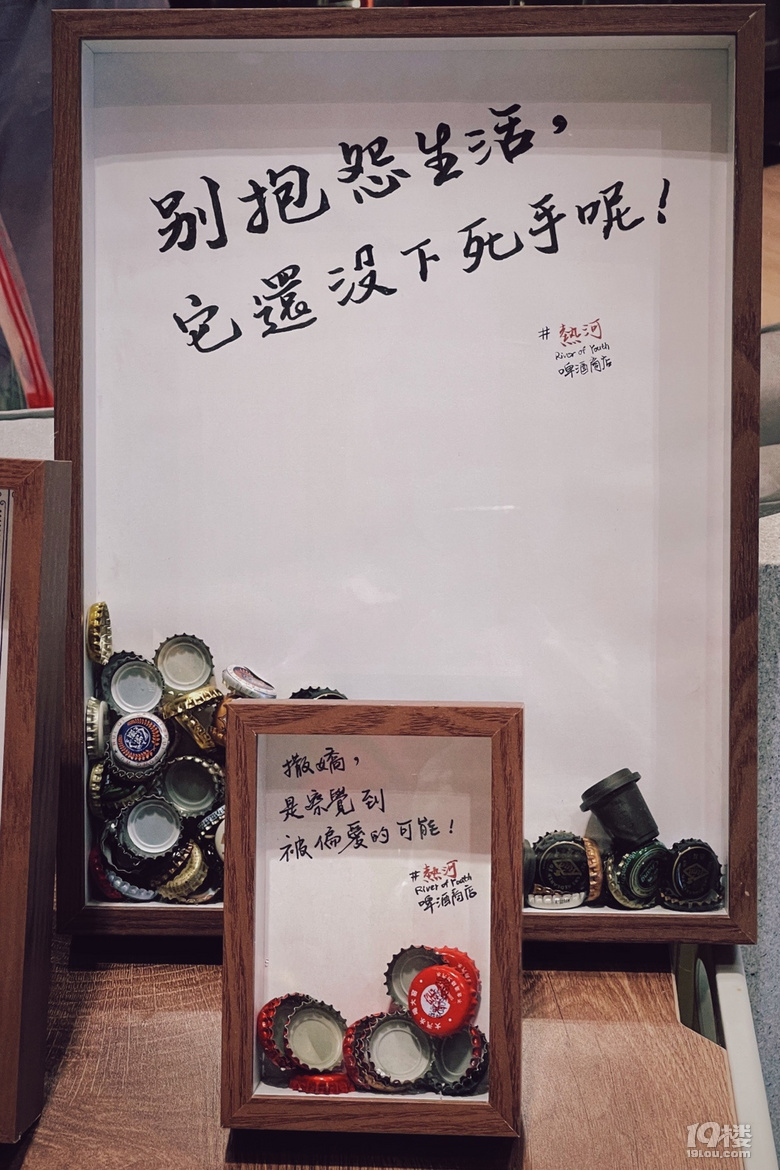 别抱怨生活，
它還没下死乎呢！
#熱河
River of Youth
啤酒商店
撒嬌，
是察覺到
被偏愛的可能！
#熱河
River of Youth
啤酒商店
大汽水
19楼
19Lou.com